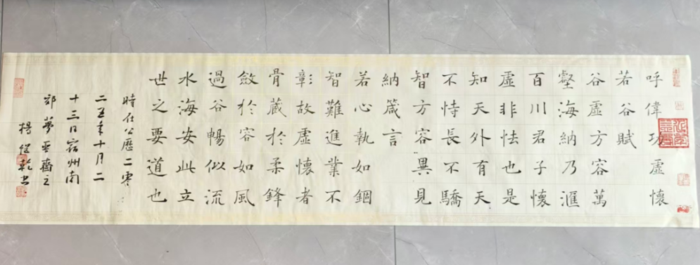 呼偉功虛懷
若谷賦
谷虛方容萬
壑海納乃滙
百川君子懷
虛非怯也是
知天外有天
不恃長不驕
智方容異見
納箴言
若心執如錮
智難進業不
彰故虛懷者
骨蔵於柔鋒
斂於容如風
過谷暢似流
水海安此立
世之要道也
時在公曆二零
二五年十月二
十三日州南
郊夢齋主
楊書